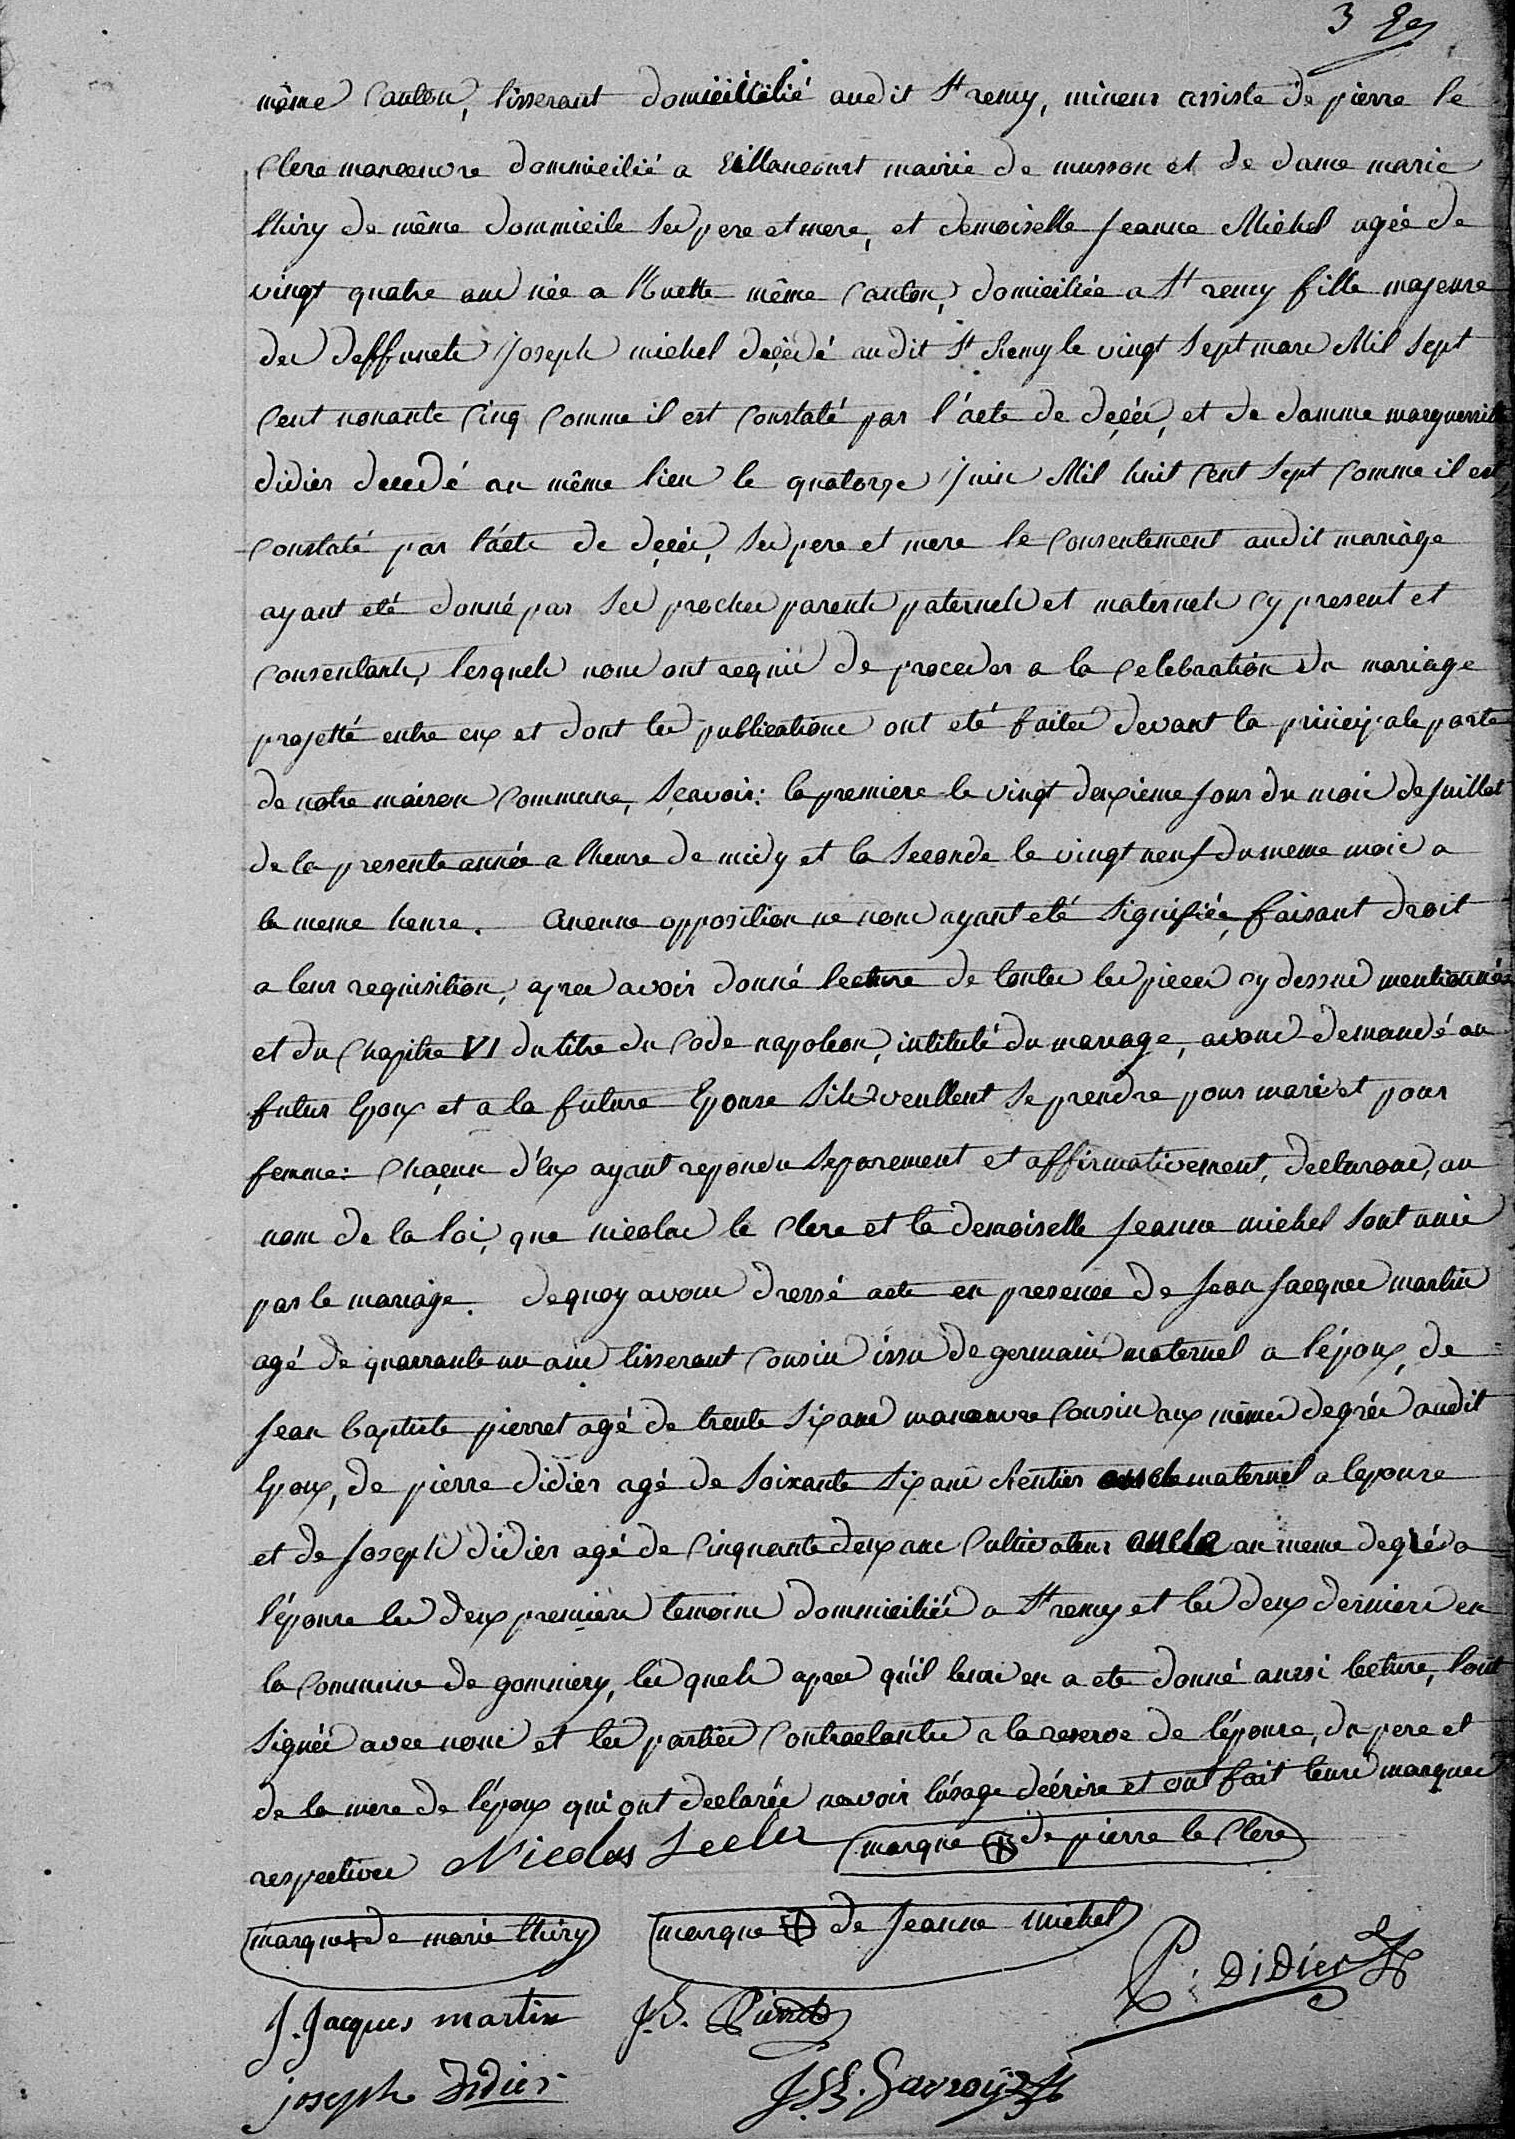 3
même Canton, tisserant domicillié audit St remy, mineur assisté de pierre le
Clere manoeuvre dommicilié a Willancourt mairie de musson et de dame marie
thiry de même dommicile ses pere et mere, et demoiselle Jeanne Michel agée de
vingt quatre ans née a Ruette même Canton, domiciliée a St remy fille majeure
des deffuncts joseph michel decédé audit St Remy le vingt Sept mars Mil Sept
Cent nonante Cinq Comme il est Constaté par l'acte de decés, et de damme marguerritte
didier decedé au même lieu le quatorze juin Mil huit Cent Sept Comme il est
Constaté par l'acte de decés, Ses pere et mere le Consentement audit mariage
ayant eté donné par Ses proches parents paternels et maternels cy present et
Consentants, lesquels nous ont requis de proceder a la Celebration du mariage
projetté entre eux et dont les publications ont eté faites devant la principale porte
de notre maison Commune, Sçavoir: la premiere le vingt deuxieme jour du mois de juillet
de la presente année a l'heure de midy et la Seconde le vingt neuf du meme mois a
la meme heure. Aucune opposition ne nous ayant eté Signifiée, faisant droit
a leur requisition, apres avoir donné lecture de toutes les pieces cy dessus mentionnés
et du Chapitre VI du titre du Code napoleon, intitulé du mariage, avons demandé au
futur Epoux et a la future Epouse S'ils veullent Se prendre pour mari et pour
femme: Chaçun d'eux ayant repondu Séparement et affirmativement, declarons, au
nom de la loi, que nicolas le Clere et la demoiselle Jeanne michel Sont unis
par le mariage. de quoy avons dressé acte en presence de Jean Jacques martin
agé de quarrante un ans tisserant Cousin issu de germain maternel a l'époux, de
Jean baptiste pierret agé de trente Six ans manoeuvre Cousin aux mêmes degrés audit
Epoux, de pierre didier agé de Soixante Six ans Rentier oncle maternel a l'epouse
et de Joseph didier agé de Cinquante deux ans Cultivateur oncle au meme degré a
l'épouse les deux premiers temoins dommiciliés a St remy et les deux derniers en
la Commune de gommery, lesquels apres qu'il leur en a ete donné aussi lecture, l'ont
Signés avec nous et les parties Contractantes a la reserve de l'épouse, du pere et
de la mere de l'époux qui ont declarés n'avoir l'usage d'écrire et ont fait leurs marques
respectives Nicolas Lecler marque de pierre le Clere
marque de marie thiry marque de Jeanne michel
P: DiDier
J. Jacques martin J.B. Pierret
joseph Didier